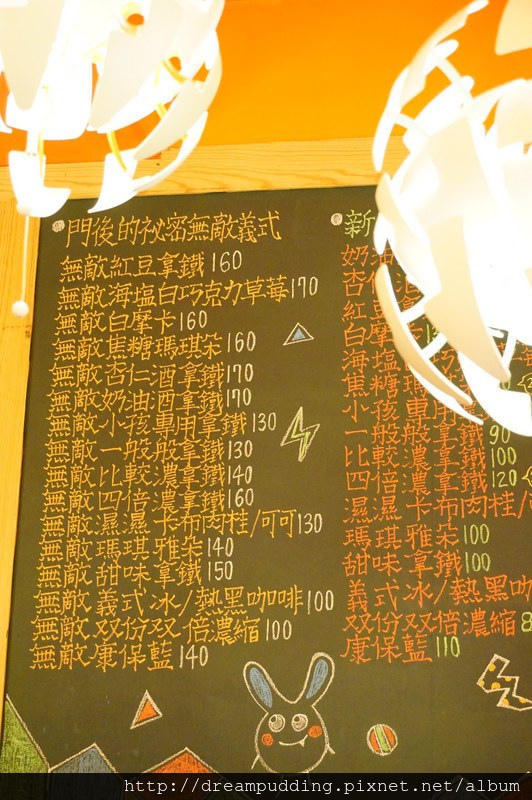 門後的祕密無敵義式
無敵紅豆拿鐵160
無敵海塩白巧克力草莓170
無敵白摩卡160
無敵焦糖瑪琪朵160
無敵杏仁酒拿鐵170
無敵奶油酒拿鐵170
無敵小孩專用拿鐵130
無敵一般般拿鐵130
無敵比較濃拿鐵140
無敵四倍濃拿鐵160
無敵濕濕卡布肉桂/可可130
無敵瑪琪雅朵140
無敵甜味拿鐵150
無敵義式冰/熱黑咖啡100
無敵双份双倍濃縮100
無敵康保藍140
新
奶油
杏
紅
白摩
海塩
焦糖瑪
小孩專用
一般般拿鐵90
比較濃拿鐵100
四倍濃拿鐵120
濕濕卡布肉桂/
瑪琪雅朵100
甜味拿鐵100
義式冰/熱黑咖
双份双倍濃縮8
康保藍110
http://dreampudding.pixnet.net/album